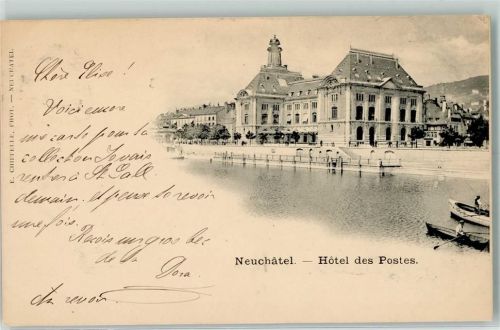 E. CHIFFELLE, PHOT. — NEUCHATEL
Chère Elise!
Voici encore
une carte pour ta
collection. Je vais
rentrer à St. Gall
demain, et peux te revoir
une fois.
Reçois un gros bec
de ta
Dora.
Au revoir
Neuchâtel. — Hôtel des Postes.